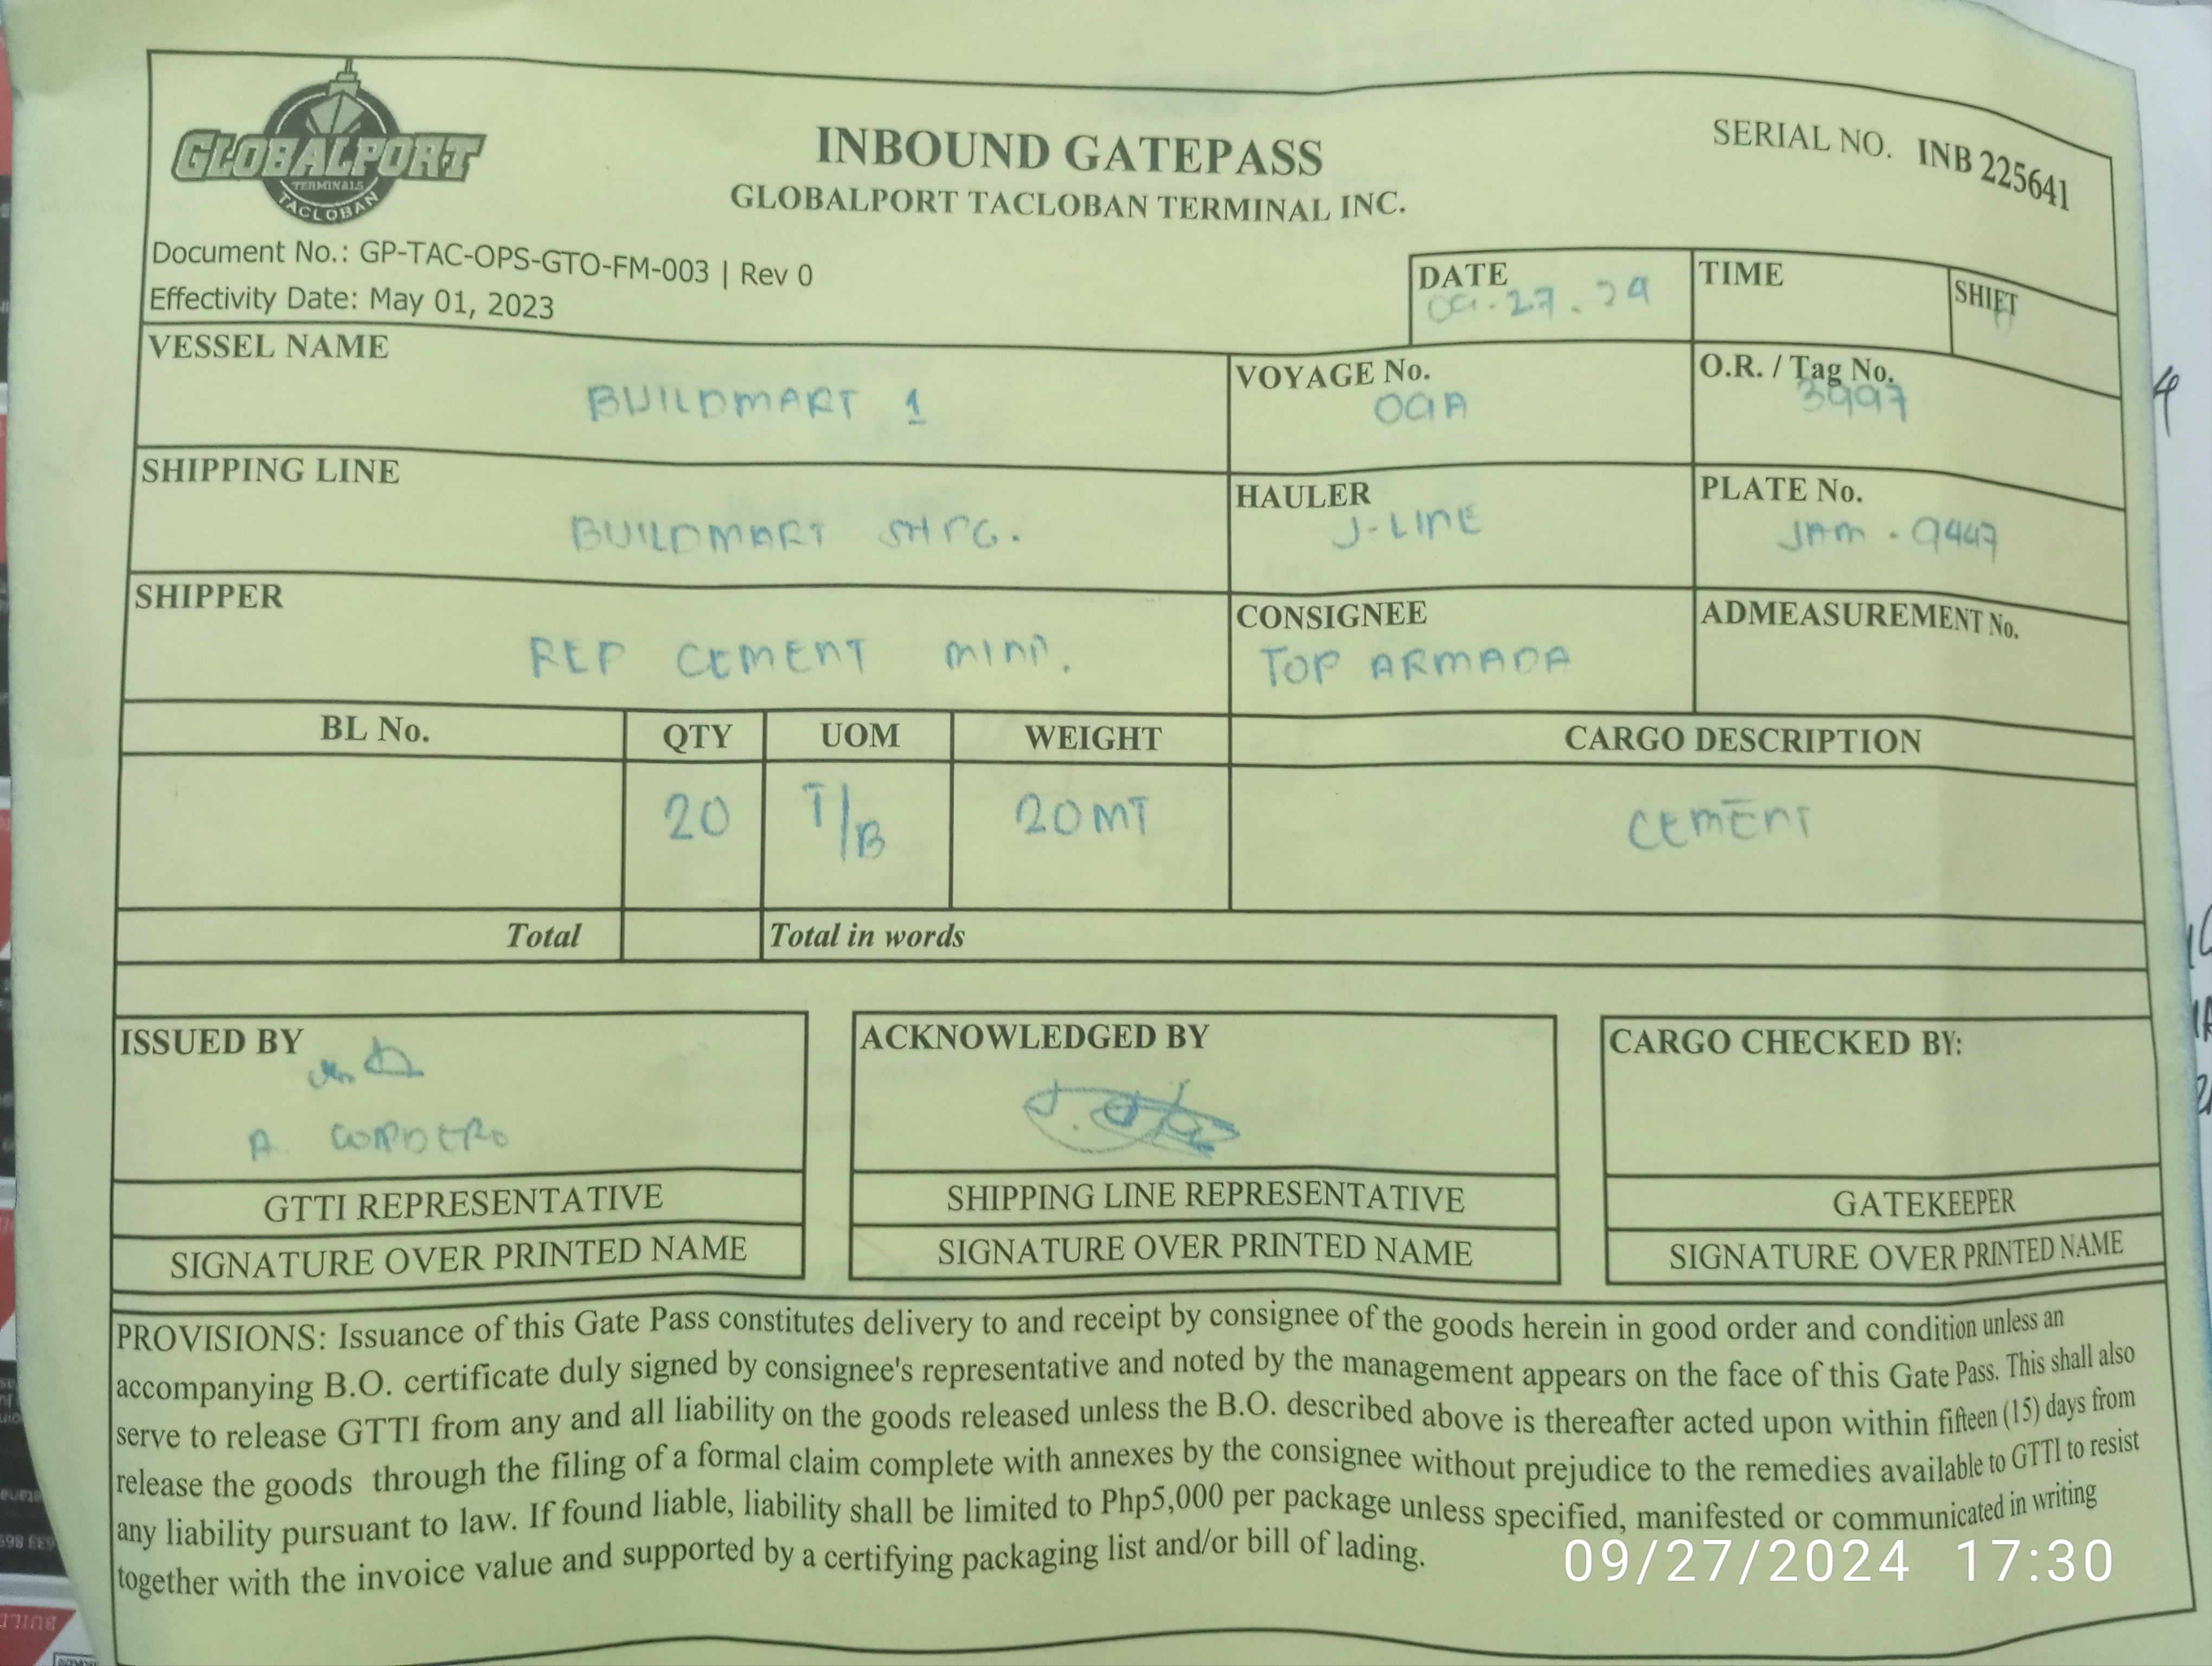 GLOBALPORT
TERMINALS
TACLOBAN
INBOUND GATEPASS
GLOBALPORT TACLOBAN TERMINAL INC.
SERIAL NO. INB 225641
Document No.: GP-TAC-OPS-GTO-FM-003 | Rev 0
Effectivity Date: May 01, 2023
DATE
09.27.24
TIME
SHIFT
VESSEL NAME
BUILDMART 1
VOYAGE No.
09A
O.R. / Tag No.
3997
SHIPPING LINE
BUILDMART SHPG.
HAULER
J-LINE
PLATE No.
JAM . 9447
SHIPPER
REP CEMENT MIND.
CONSIGNEE
TOP ARMADA
ADMEASUREMENT No.
BL No. QTY UOM WEIGHT CARGO DESCRIPTION
20 T/B 20MT CEMENT
Total Total in words
ISSUED BY
A. CORDERO
GTTI REPRESENTATIVE
SIGNATURE OVER PRINTED NAME
ACKNOWLEDGED BY
SHIPPING LINE REPRESENTATIVE
SIGNATURE OVER PRINTED NAME
CARGO CHECKED BY:
GATEKEEPER
SIGNATURE OVER PRINTED NAME
PROVISIONS: Issuance of this Gate Pass constitutes delivery to and receipt by consignee of the goods herein in good order and condition unless an
accompanying B.O. certificate duly signed by consignee's representative and noted by the management appears on the face of this Gate Pass. This shall also
serve to release GTTI from any and all liability on the goods released unless the B.O. described above is thereafter acted upon within fifteen (15) days from
release the goods through the filing of a formal claim complete with annexes by the consignee without prejudice to the remedies available to GTTI to resist
any liability pursuant to law. If found liable, liability shall be limited to Php5,000 per package unless specified, manifested or communicated in writing
together with the invoice value and supported by a certifying packaging list and/or bill of lading.
09/27/2024 17:30